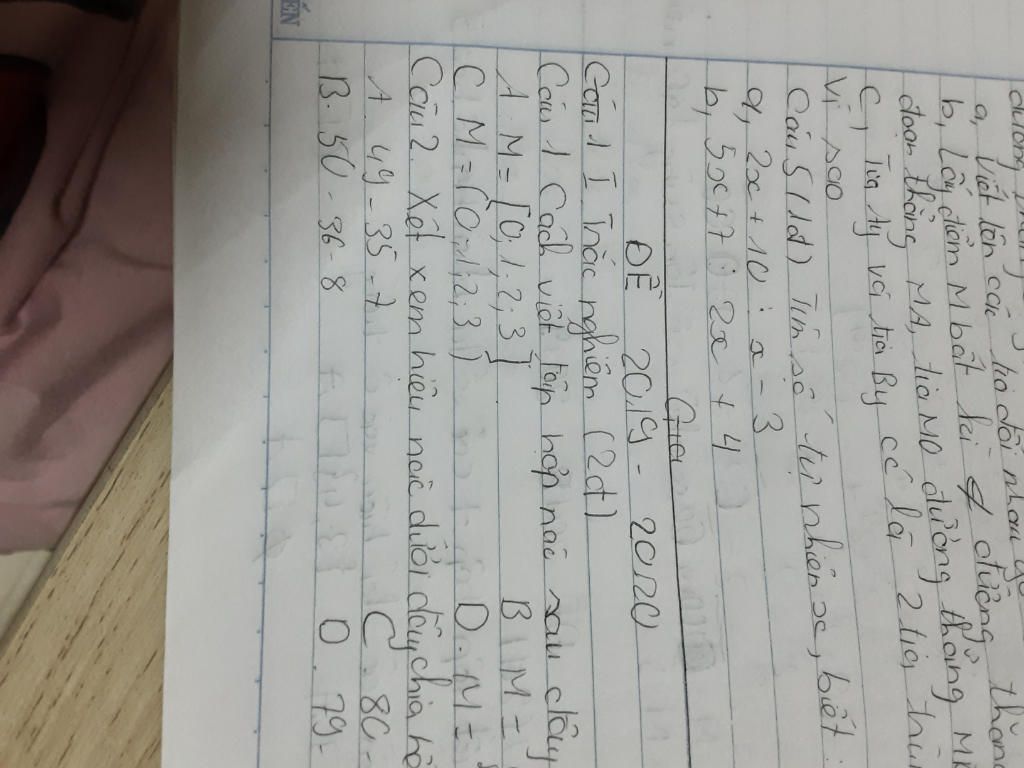 a, Viết tên các tia đối nhau
b, Lấy điểm M bất kì ∉ đường thẳng
đoạn thẳng MA, tia MO đường thẳng M
c, Tia Ay và tia By có là 2 tia trùn
Vì sao
Câu 5 (1đ) Tìm số tự nhiên x, biết :
a, 2x + 10 : x - 3
b, 5x + 7 : 2x + 4
ĐỀ 2019 - 2020
Câu 1 I Trắc nghiệm (2đ)
Câu 1 Cách viết tập hợp nào sau đây
A. M = [0, 1, 2, 3] B M =
C M = {0, 1, 2, 3} D. M =
Câu 2. Xét xem hiệu nào dưới đây chia hế
A. 49 - 35 - 7 C. 80 -
B. 50 - 36 - 8 D. 79 -
ẾN